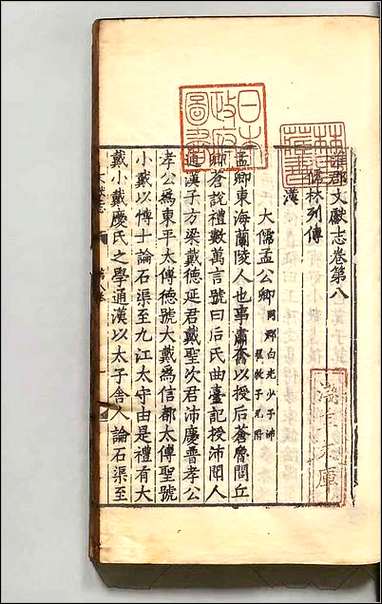 郡文獻志卷第八
儒林列傳
漢
大儒孟公卿 同郡白光少子沛翟牧子兄附
孟卿東海蘭陵人也事蕭奮以授后蒼魯閭丘
卿蒼說禮數萬言號曰后氏曲臺記授沛聞人
通漢子方梁戴德延君戴聖次君沛慶普孝公
孝公為東平太傅德號大戴為信都太傅聖號
小戴以博士論石渠至九江太守由是禮有大
戴小戴慶氏之學通漢以太子舍人論石渠至
日本
政府
圖書